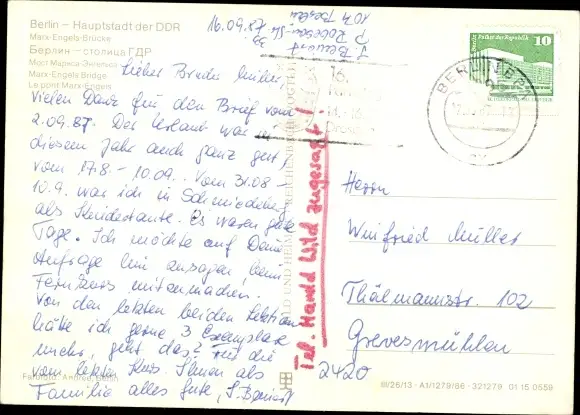 Berlin – Hauptstadt der DDR
Marx-Engels-Brücke
Берлин – столица ГДР
Мост Маркса-Энгельса
Marx-Engels Bridge
Le pont Marx-Engels
16.09.87
39
Lieber Bruder Müller,
Vielen Dank für den Brief vom
2.09.87. Der Urlaub war in
diesem Jahr auch ganz gut,
vom 17.8 - 10.09. Vom 31.08 -
10.9. war ich in Schmiedeberg
als Kindertante. Es waren gute
Tage. Ich möchte auf Deine
Anfrage hin zusagen, beim
Fernkurs mitzumachen.
Von den letzten beiden Lektionen
hätte ich gerne 3 Exemplare
mehr, geht das? Für die
vom letzten Kurs. Ihnen als
Familie alles Gute,
Tel. Harald Wild zugesagt!
Berlin Palast der Republik
10
DDR
BERLIN
Herrn
Winfried Müller
Thälmannstr. 102
Grevesmühlen
2420
III/26/13 · A1/1279/86 · 321279 01 15 0559